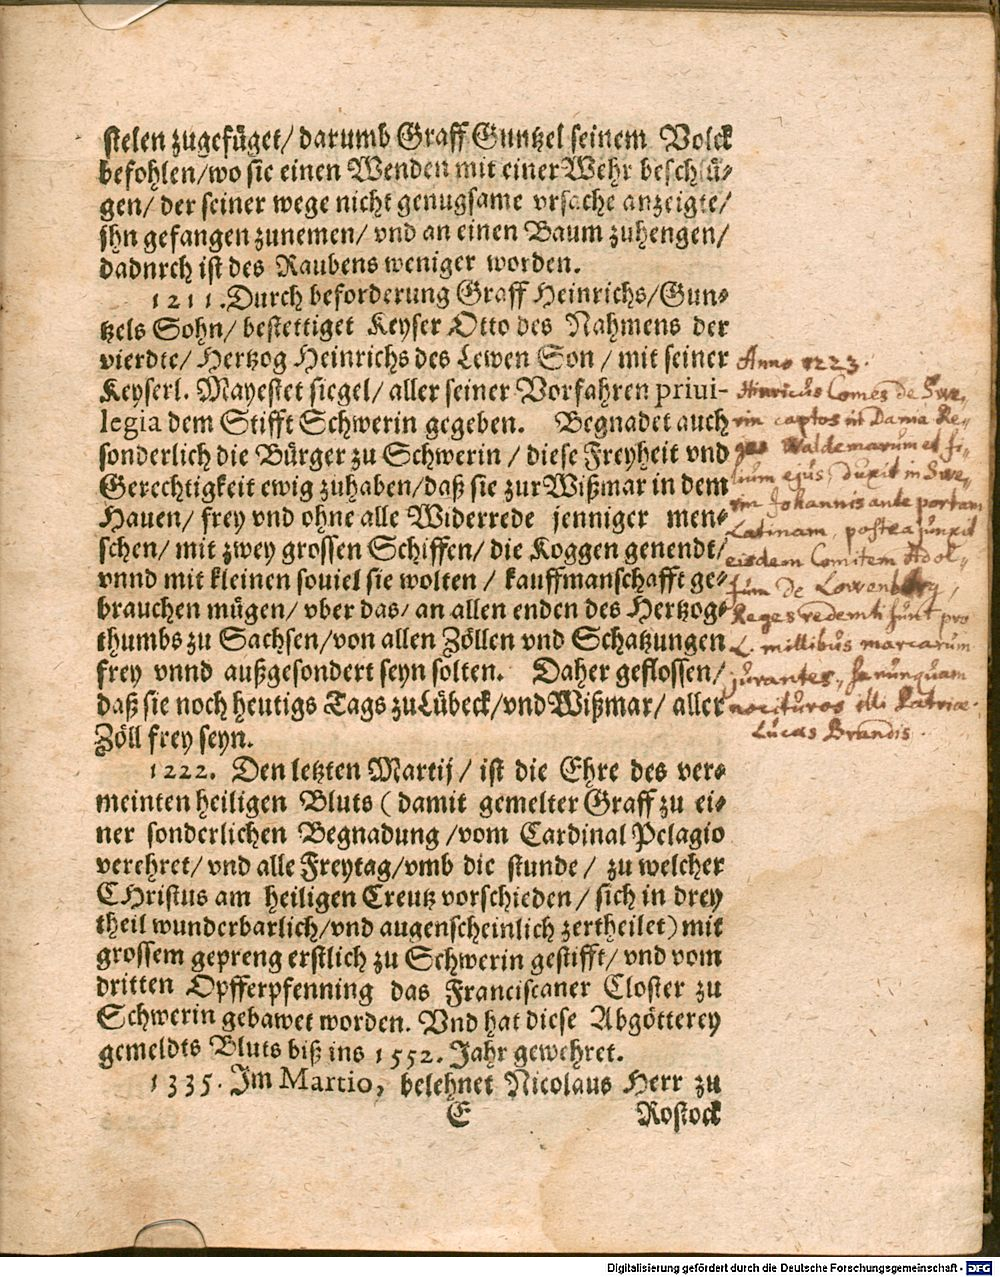 stelen zugefüget/ darumb Graff Guntzel seinem Volck
befohlen/ wo sie einen Wenden mit einer Wehr beschlü-
gen/ der seiner wege nicht genugsame vrsache anzeigte/
ihn gefangen zunemen/ vnd an einen Baum zuhengen/
dadnrch ist des Raubens weniger worden.
1211. Durch beforderung Graff Heinrichs/ Gun-
tzels Sohn/ bestettiget Keyser Otto des Nahmens der
vierdte/ Hertzog Heinrichs des Lewen Son/ mit seiner
Keyserl. Mayestet siegel/ aller seiner Vorfahren priui-
legia dem Stifft Schwerin gegeben. Begnadet auch
sonderlich die Bürger zu Schwerin/ diese Freyheit vnd
Gerechtigkeit ewig zuhaben/ daß sie zur Wißmar in dem
Hauen/ frey vnd ohne alle Widerrede jenniger men-
schen/ mit zwey grossen Schiffen/ die Koggen genendt/
vnnd mit kleinen souiel sie wolten/ kauffmanschafft ge-
brauchen mügen/ vber das/ an allen enden des Hertzog-
thumbs zu Sachsen/ von allen Zöllen vnd Schatzungen
frey vnnd außgesondert seyn solten. Daher geflossen/
daß sie noch heutigs Tags zu Lübeck/ vnd Wißmar/ aller
Zöll frey seyn.
1222. Den letzten Martij/ ist die Ehre des ver-
meinten heiligen Bluts (damit gemelter Graff zu ei-
ner sonderlichen Begnadung/ vom Cardinal Pelagio
verehret/ vnd alle Freytag/ vmb die stunde/ zu welcher
CHristus am heiligen Creutz vorschieden/ sich in drey
theil wunderbarlich/ vnd augenscheinlich zertheilet) mit
grossem gepreng erstlich zu Schwerin gestifft/ vnd vom
dritten Opfferpfenning das Franciscaner Closter zu
Schwerin gebawet worden. Vnd hat diese Abgötterey
gemeldts Bluts biß ins 1552. Jahr gewehret.
1335. Im Martio, belehnet Nicolaus Herr zu
E Rostock
Anno 1223.
Hinricus Comes de Swe-
rin captos in Dania Re-
ges Waldemarum et fi-
lium ejus, duxit in Swe-
rin Johannis ante portam
Latinam, postea junxit
eisdem Comitem Adol-
fum de Lowenberg,
Reges redemti sunt pro
L. millibus marcarum
jurantes, se nunquam
nocituros illi Patriae.
Lucas Brandis.
Digitalisierung gefördert durch die Deutsche Forschungsgemeinschaft - DFG